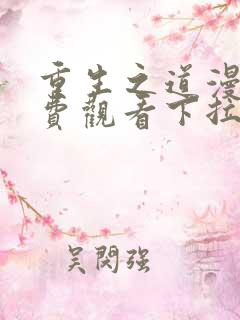 重生之道漫
費觀看下拉
吴閔强